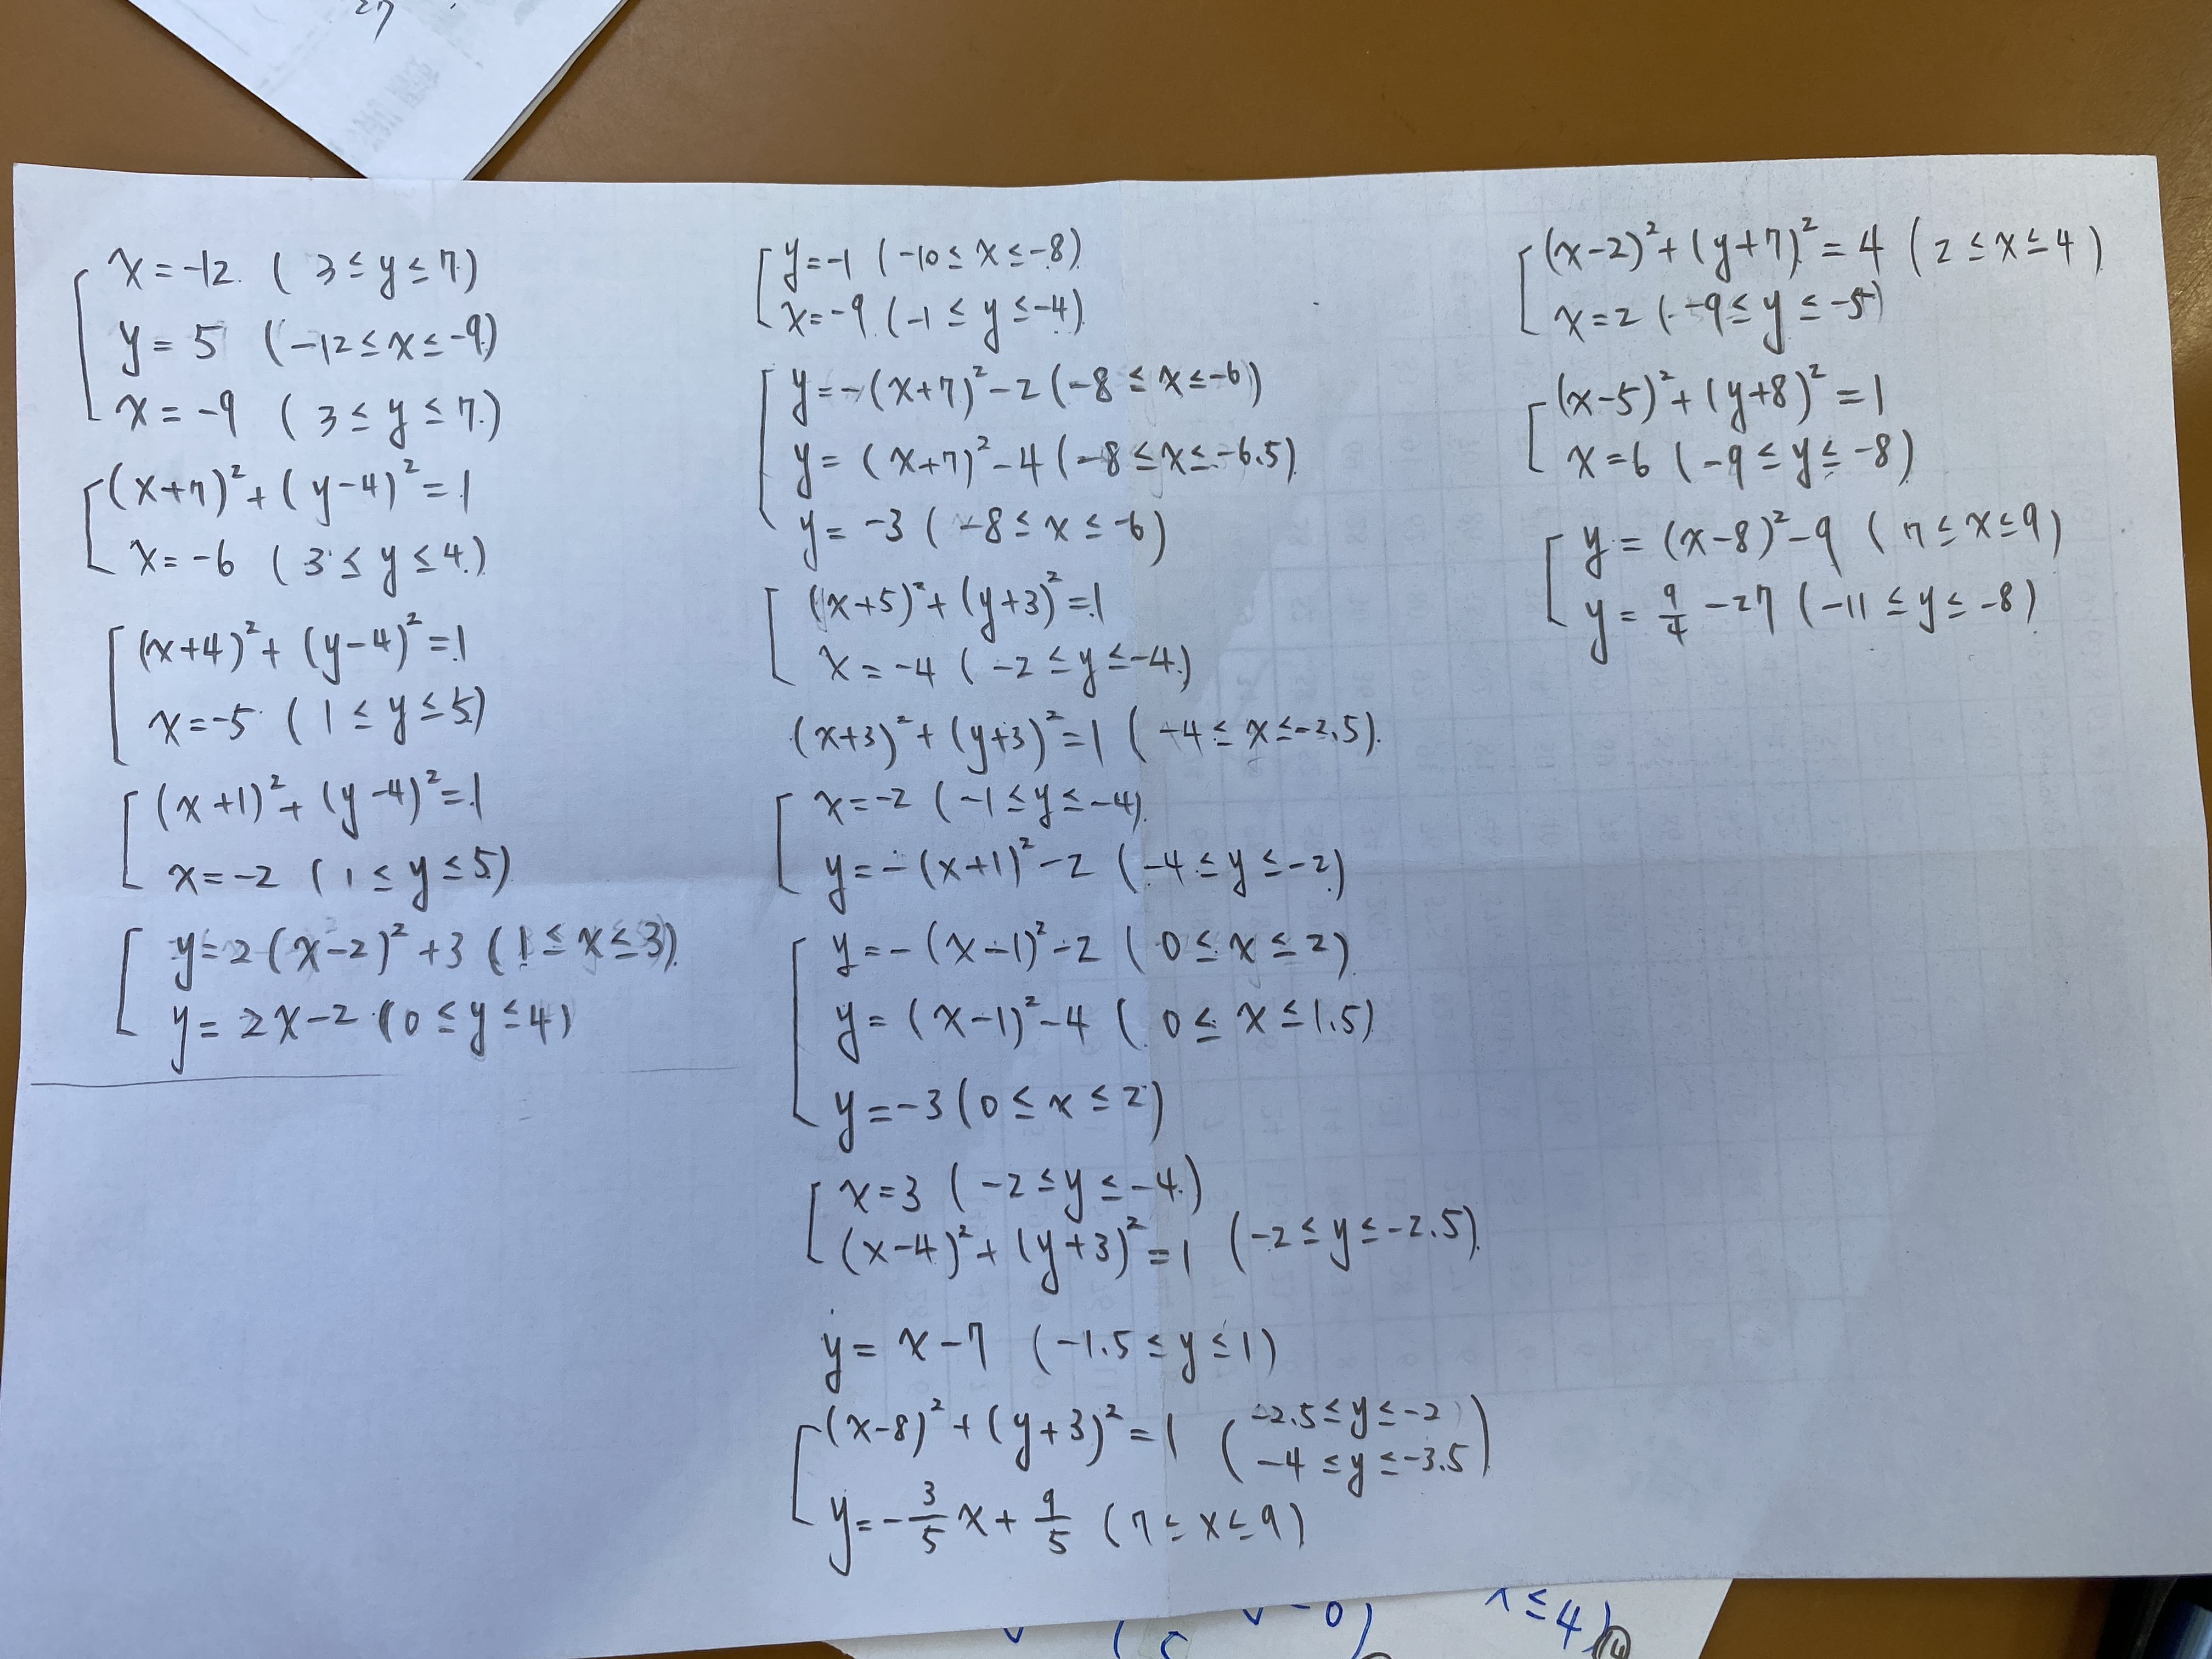 27
x=-12 (3≤y≤7)
y=5 (-12≤x≤-9)
x=-9 (3≤y≤7)
(x+7)²+(y-4)²=1
x=-6 (3≤y≤4)
(x+4)²+(y-4)²=1
x=-5 (1≤y≤5)
(x+1)²+(y-4)²=1
x=-2 (1≤y≤5)
y=2(x-2)²+3 (1≤x≤3)
y=2x-2 (0≤y≤4)
y=-1 (-10≤x≤-8)
x=-9 (-1≤y≤-4)
y=-(x+7)²-2 (-8≤x≤-6)
y=(x+7)²-4 (-8≤x≤-6.5)
y=-3 (-8≤x≤-6)
(x+5)²+(y+3)²=1
x=-4 (-2≤y≤-4)
(x+3)²+(y+3)²=1 (-4≤x≤-2.5)
x=-2 (-1≤y≤-4)
y=-(x+1)²-2 (-4≤y≤-2)
y=-(x-1)²-2 (0≤x≤2)
y=(x-1)²-4 (0≤x≤1.5)
y=-3 (0≤x≤2)
x=3 (-2≤y≤-4)
(x-4)²+(y+3)²=1 (-2≤y≤-2.5)
y=x-7 (-1.5≤y≤1)
(x-8)²+(y+3)²=1 (-2.5≤y≤-2
-4≤y≤-3.5)
y=-3/5x+9/5 (7≤x≤9)
(x-2)²+(y+7)²=4 (2≤x≤4)
x=2 (-9≤y≤-5)
(x-5)²+(y+8)²=1
x=6 (-9≤y≤-8)
y=(x-8)²-9 (7≤x≤9)
y=9/4-27 (-11≤y≤-8)
≤4) 14